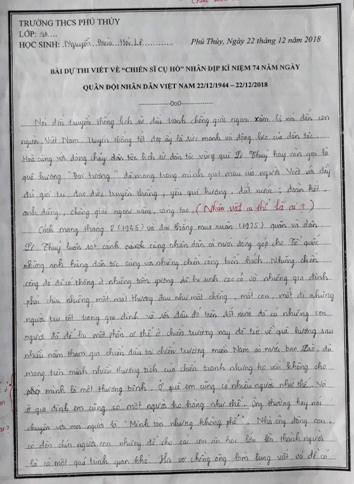 TRƯỜNG THCS PHÚ THỦY
LỚP:
HỌC SINH: Nguyễn
Phú Thủy, Ngày 22 tháng 12 năm 2018
BÀI DỰ THI VIẾT VỀ “CHIẾN SĨ CỤ HỒ” NHÂN DỊP KỈ NIỆM 74 NĂM NGÀY
QUÂN ĐỘI NHÂN DÂN VIỆT NAM 22/12/1944 – 22/12/2018
-----oo0-----
Nói đến truyền thống lịch sử đấu tranh chống giặc ngoại xâm là nói đến con
người Việt Nam. truyền thống tốt đẹp ấy là sức mạnh và động lực của dân tộc.
Hoà cùng với dòng chảy dân tộc lịch sử dân tộc vùng quê Lệ Thuỷ hay còn gọi là
quê hương "hai trong mình con người Việt và đầy
đủ giá trị đạo đức truyền thống, yêu quê hương, đất nước, đoàn kết,
anh dũng, chống giặc ngoại xâm, sáng tạo. (Nhân vật cụ thể là ai ?)
Cách mạng tháng 8 (1945) và đại thắng mùa xuân (1975) quân và dân
Lệ Thuỷ luôn sát cánh cùng nhân dân cả nước đóng góp cho Tổ quốc
những anh hùng dân tộc cùng với những chiến công hiển hách. Những chiến
công đó đã có không ít những tấm gương đã hi sinh cao cả và những gia đình
phải chịu những mất mát thương đau như mất chồng, mất con, mất đi những
người trụ cột trong gia đình và rồi đâu đó trên đất nước đó có những con
người đã để lại một phần cơ thể ở chiến trường này để trở về quê hương sau
nhiều năm tham gia chiến đấu tại chiến trường miền Nam và nước bạn Lào, dù
mang trên mình nhiều thương tích của chiến tranh nhưng họ vẫn không cho
phép mình là một thương binh. Ở quê em cũng có nhiều người như thế. Nơi
ở gia đình em cũng có một người họ hàng như thế. Ông thường hay nói
chuyện với mọi người là "Mình tàn nhưng không phế". Nhà ông đông con,
có đến chín người con nhưng để cho các con ăn học lớn lên thành người
là cả một quá trình gian khổ. Hai vợ chồng ông làm lụng vất vả để có